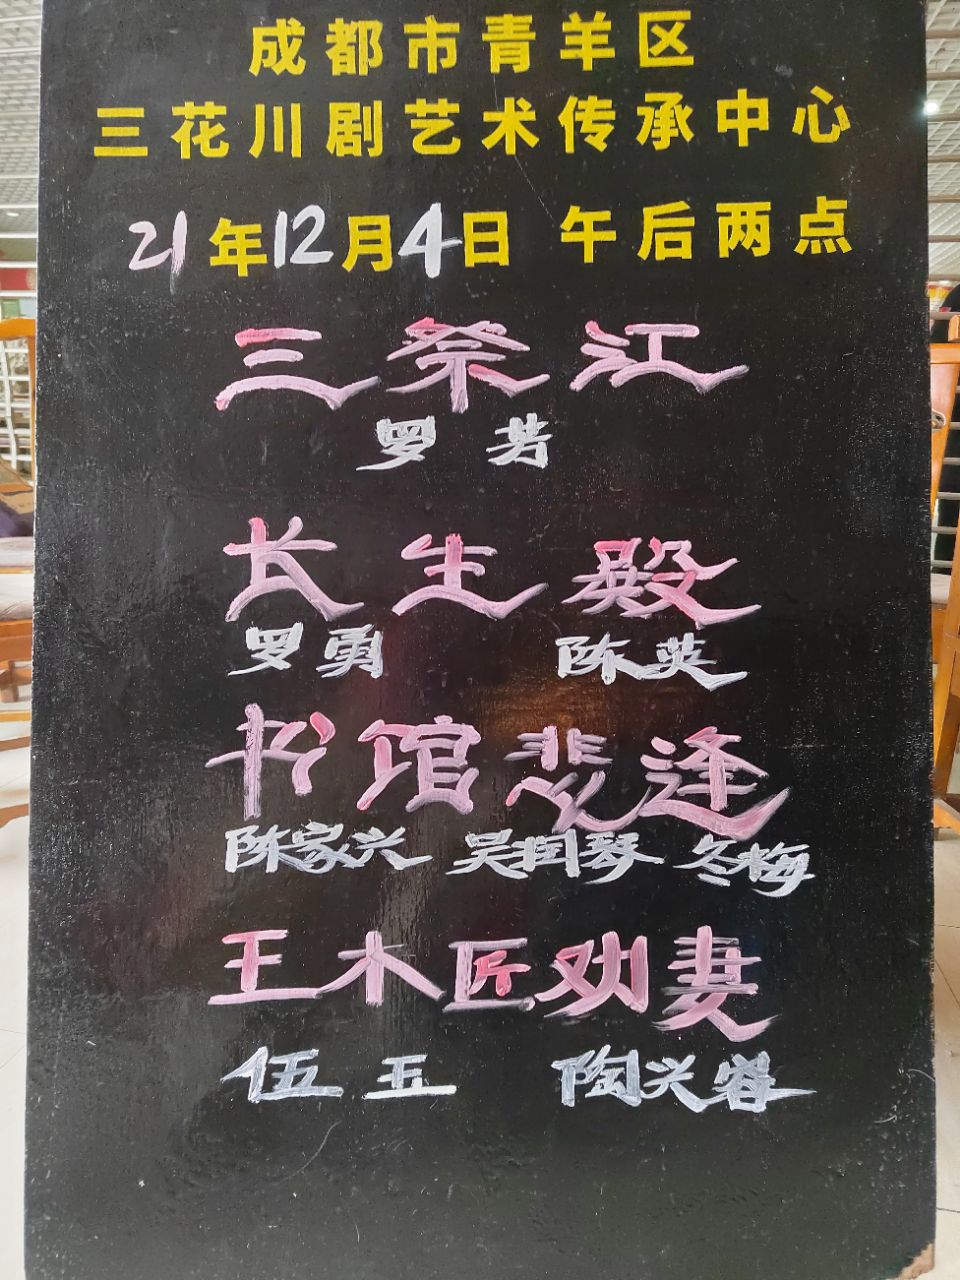 成都市青羊区
三花川剧艺术传承中心
21年12月4日 午后两点
三祭江
罗芳
长生殿
罗勇 陈英
书馆悲逢
陈家兴 吴闰琴 冬梅
王木匠劝妻
伍玉 陶兴蓉